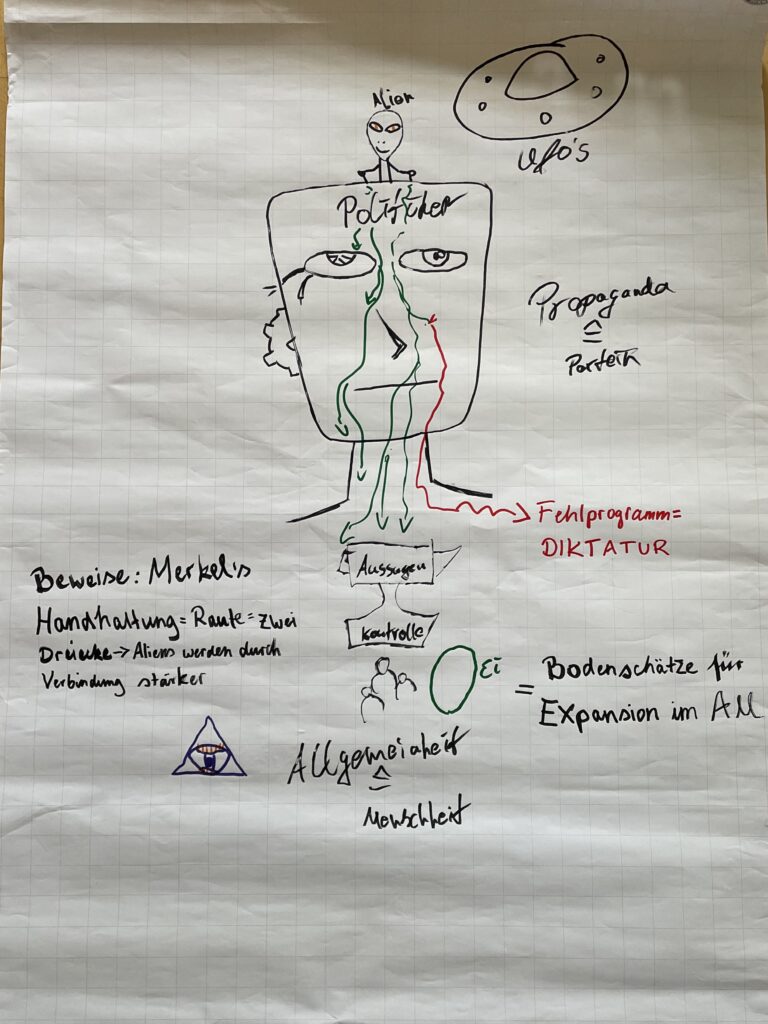 Alien
UFO's
Politiker
Propaganda
≙
Partein
Fehlprogramm=
DIKTATUR
Aussagen
Kontrolle
Beweise: Merkel's
Handhaltung = Raute = zwei
Dreiecke → Aliens werden durch
Verbindung stärker
Ei
= Bodenschätze für
Expansion im All
Allgemeinheit
≙
Menschheit